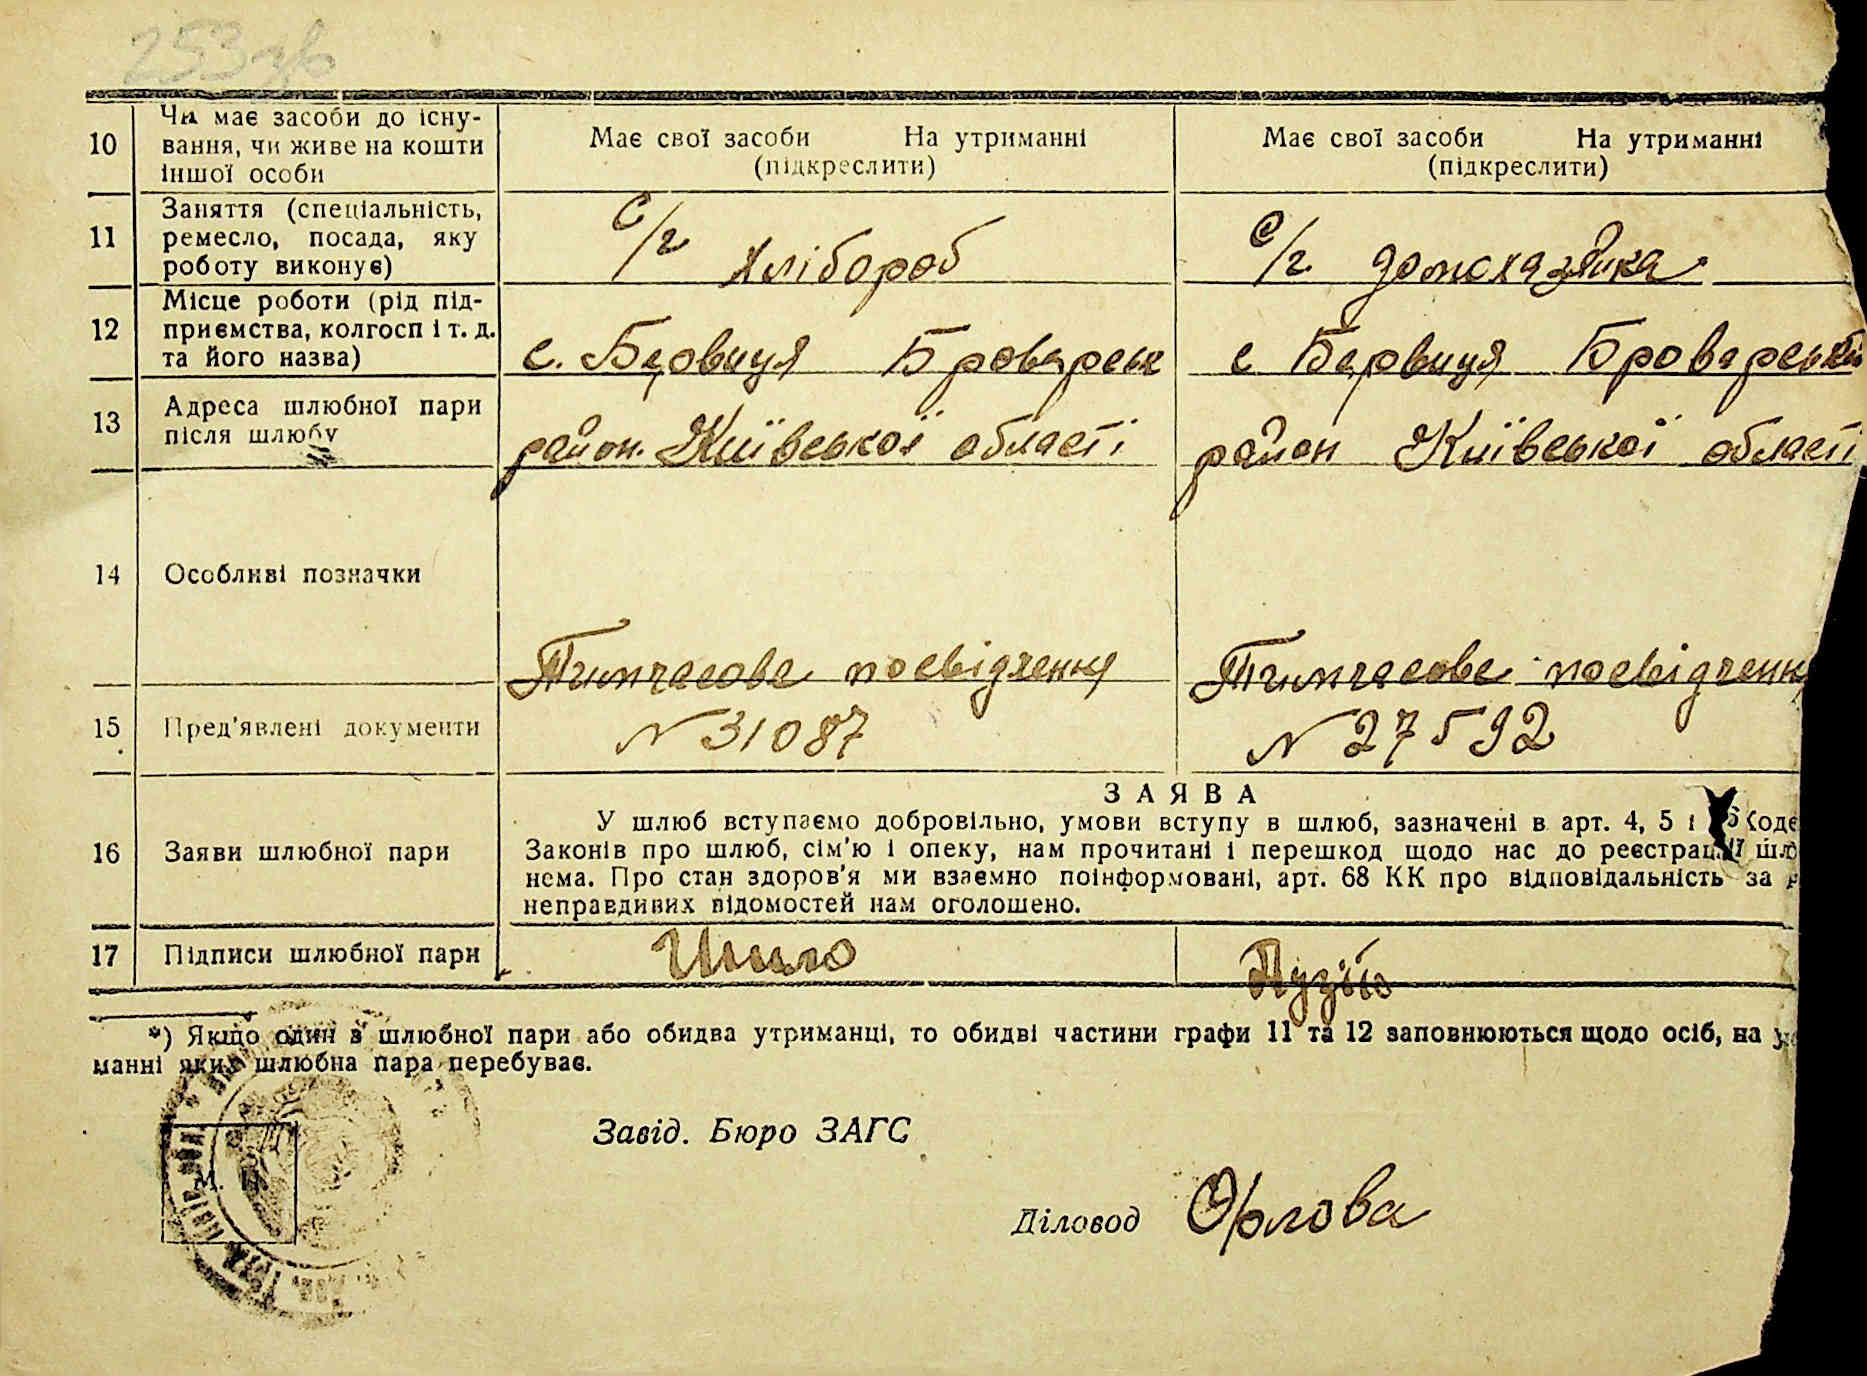 253зв
10 Чи має засоби до існу-
вання, чи живе на кошти
іншої особи
Має свої засоби На утриманні
(підкреслити)
Має свої засоби На утриманні
(підкреслити)
11 Заняття (спеціальність,
ремесло, посада, яку
роботу виконує)
с/г хлібороб
с/г. домохазяйка
12 Місце роботи (рід під-
приємства, колгосп і т. д.
та його назва)
с. Бервиця Броварськ
с Бервиця Броварський
13 Адреса шлюбної пари
після шлюбу
район. Київської області
район Київської області
14 Особливі позначки
Тимчасове посвідчення
Тимчасове посвідченн
15 Пред'явлені документи
N 31087
N 27592
16 Заяви шлюбної пари
ЗАЯВА
У шлюб вступаємо добровільно, умови вступу в шлюб, зазначені в арт. 4, 5 і 6 Коде
Законів про шлюб, сім'ю і опеку, нам прочитані і перешкод щодо нас до реєстрації шлю
нема. Про стан здоров'я ми взаємно поінформовані, арт. 68 КК про відповідальність за
неправдивих відомостей нам оголошено.
17 Підписи шлюбної пари
Шило
*) Якщо один з шлюбної пари або обидва утриманці, то обидві частини графи 11 та 12 заповнюються щодо осіб, на
манні яких шлюбна пара перебуває.
Завід. Бюро ЗАГС
М.
Діловод Орлова